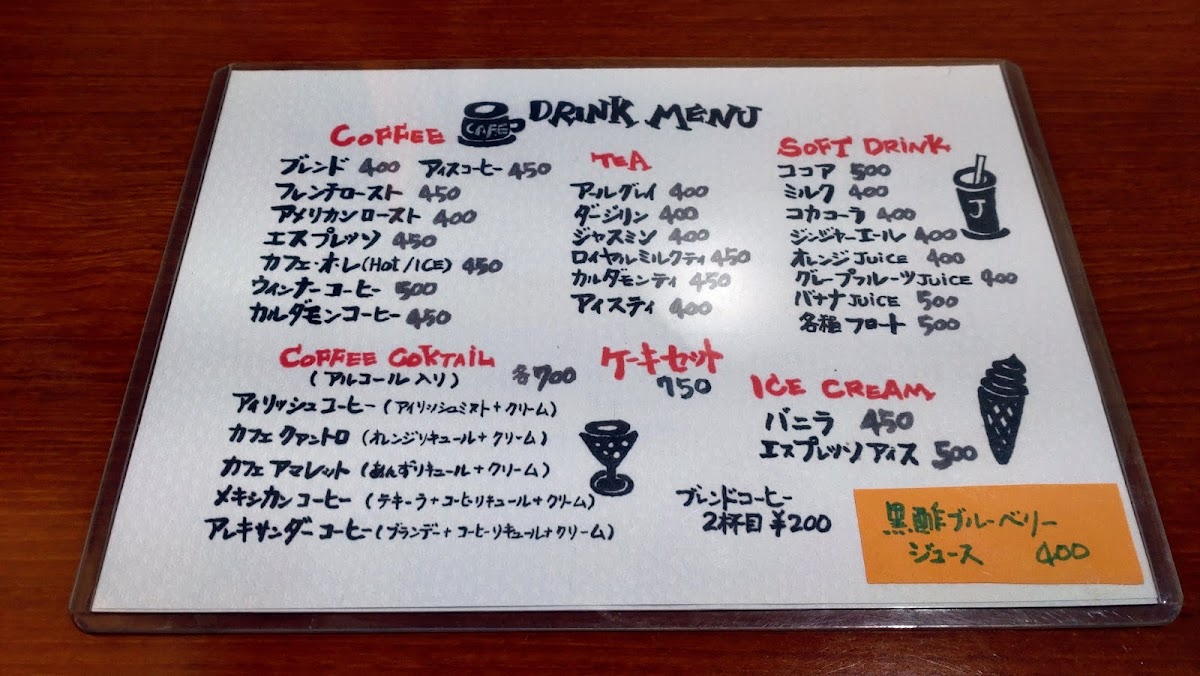 CAFE
DRINK MENU
COFFEE
ブレンド 400 アイスコーヒー 450
フレンチロースト 450
アメリカンロースト 400
エスプレッソ 450
カフェ・オ・レ(Hot/ICE) 450
ウィンナーコーヒー 500
カルダモンコーヒー 450
TEA
アールグレイ 400
ダージリン 400
ジャスミン 400
ロイヤルミルクティ 450
カルダモンティ 450
アイスティ 400
SOFT DRINK
ココア 500
ミルク 400
コカコーラ 400
ジンジャーエール 400
オレンジJUICE 400
グレープフルーツJUICE 400
バナナJUICE 500
各種フロート 500
J
COFFEE COKTAIL
(アルコール入り) 各700
アイリッシュコーヒー(アイリッシュミスト+クリーム)
カフェクァントロ(オレンジリキュール+クリーム)
カフェアマレット(あんずリキュール+クリーム)
メキシカンコーヒー(テキーラ+コーヒーリキュール+クリーム)
アレキサンダーコーヒー(ブランデー+コーヒーリキュール+クリーム)
ケーキセット
750
ICE CREAM
バニラ 450
エスプレッソアイス 500
ブレンドコーヒー
2杯目¥200
黒酢ブルーベリー
ジュース 400